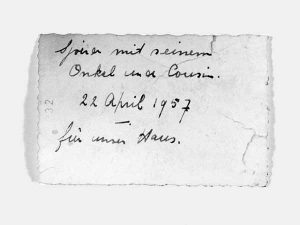 mit seinem
Onkel und Cousin.
22 April 1957
für unser Haus.
32